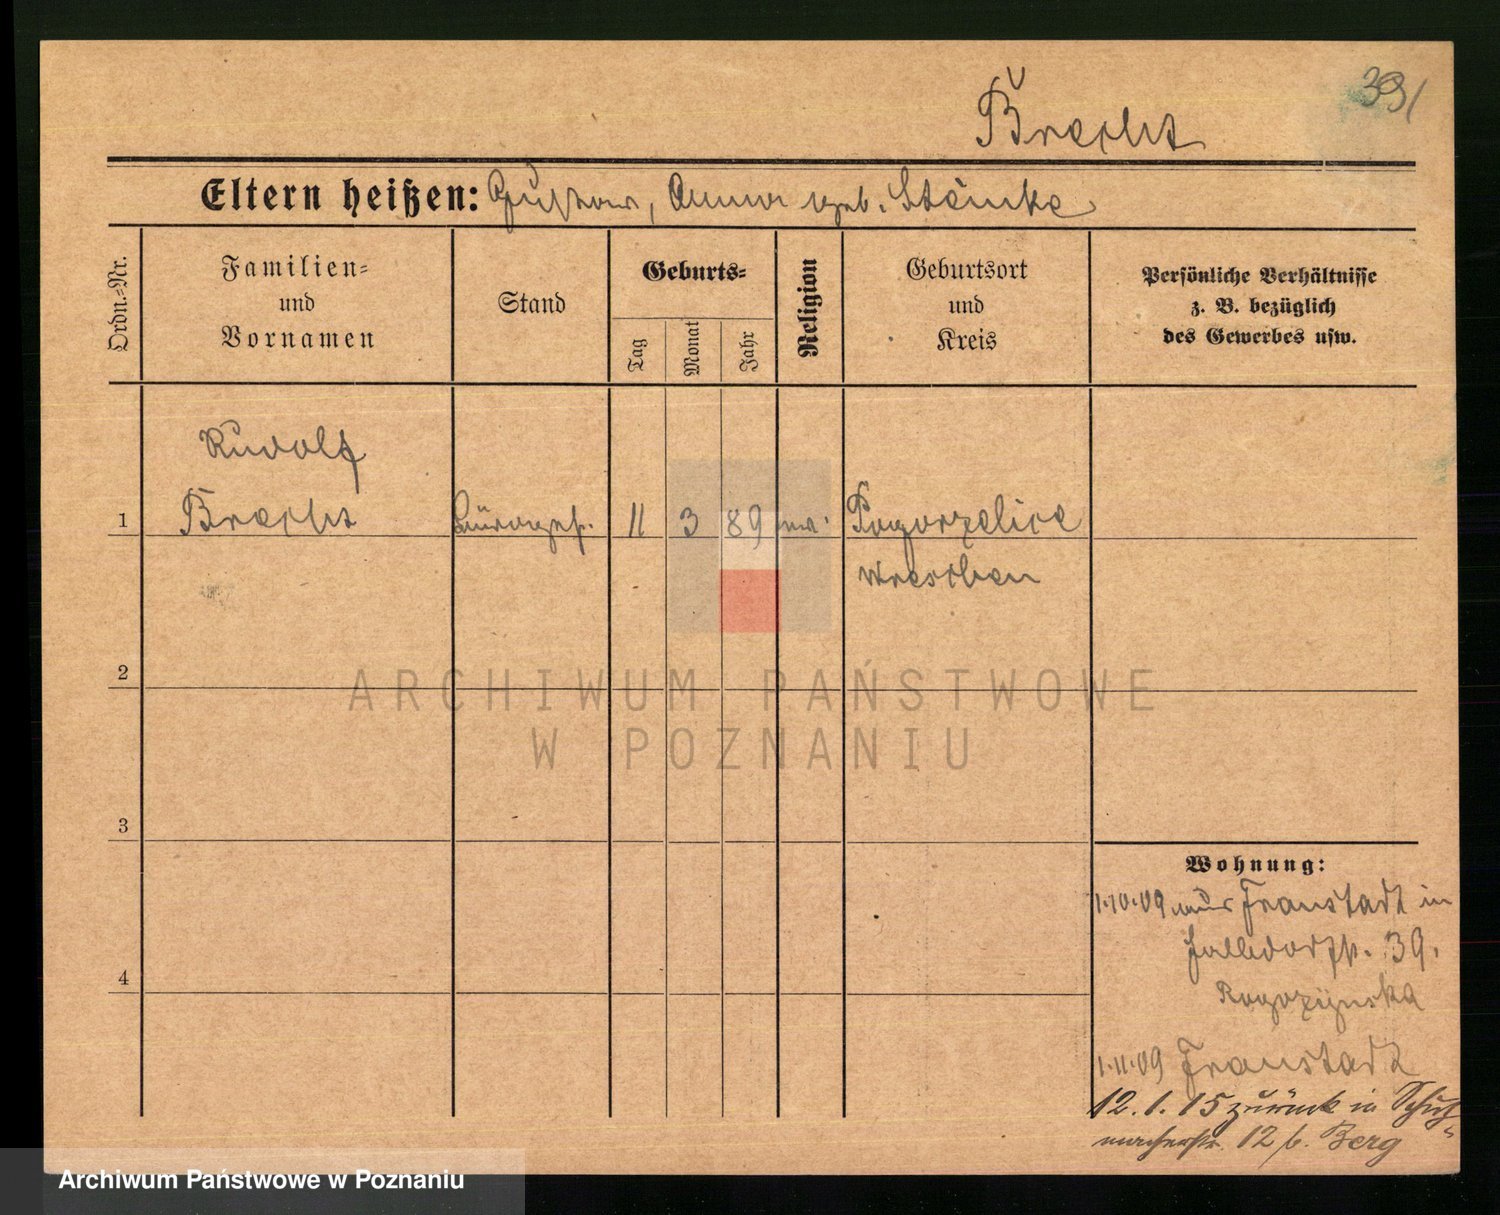 391
Brecht
Eltern heißen: Gustav, Anna geb. Steinke
Ordn.-Nr.
Familien-
und
Vornamen
Stand
Geburts-
Tag
Monat
Jahr
Religion
Geburtsort
und
Kreis
Persönliche Verhältnisse
z. B. bezüglich
des Gewerbes usw.
Rudolf
1 Brecht Bürogeh. 11 3 89 ev. Pogorzelice
Wreschen
2
3
4
Wohnung:
1.10.09 aus Fraustadt in
39.
Rogozynska
1.11.09 Fraustadt
12.1.15 zurück in Schuh-
macherstr. 12 b. Berg
ARCHIWUM PAŃSTWOWE
W POZNANIU
Archiwum Państwowe w Poznaniu